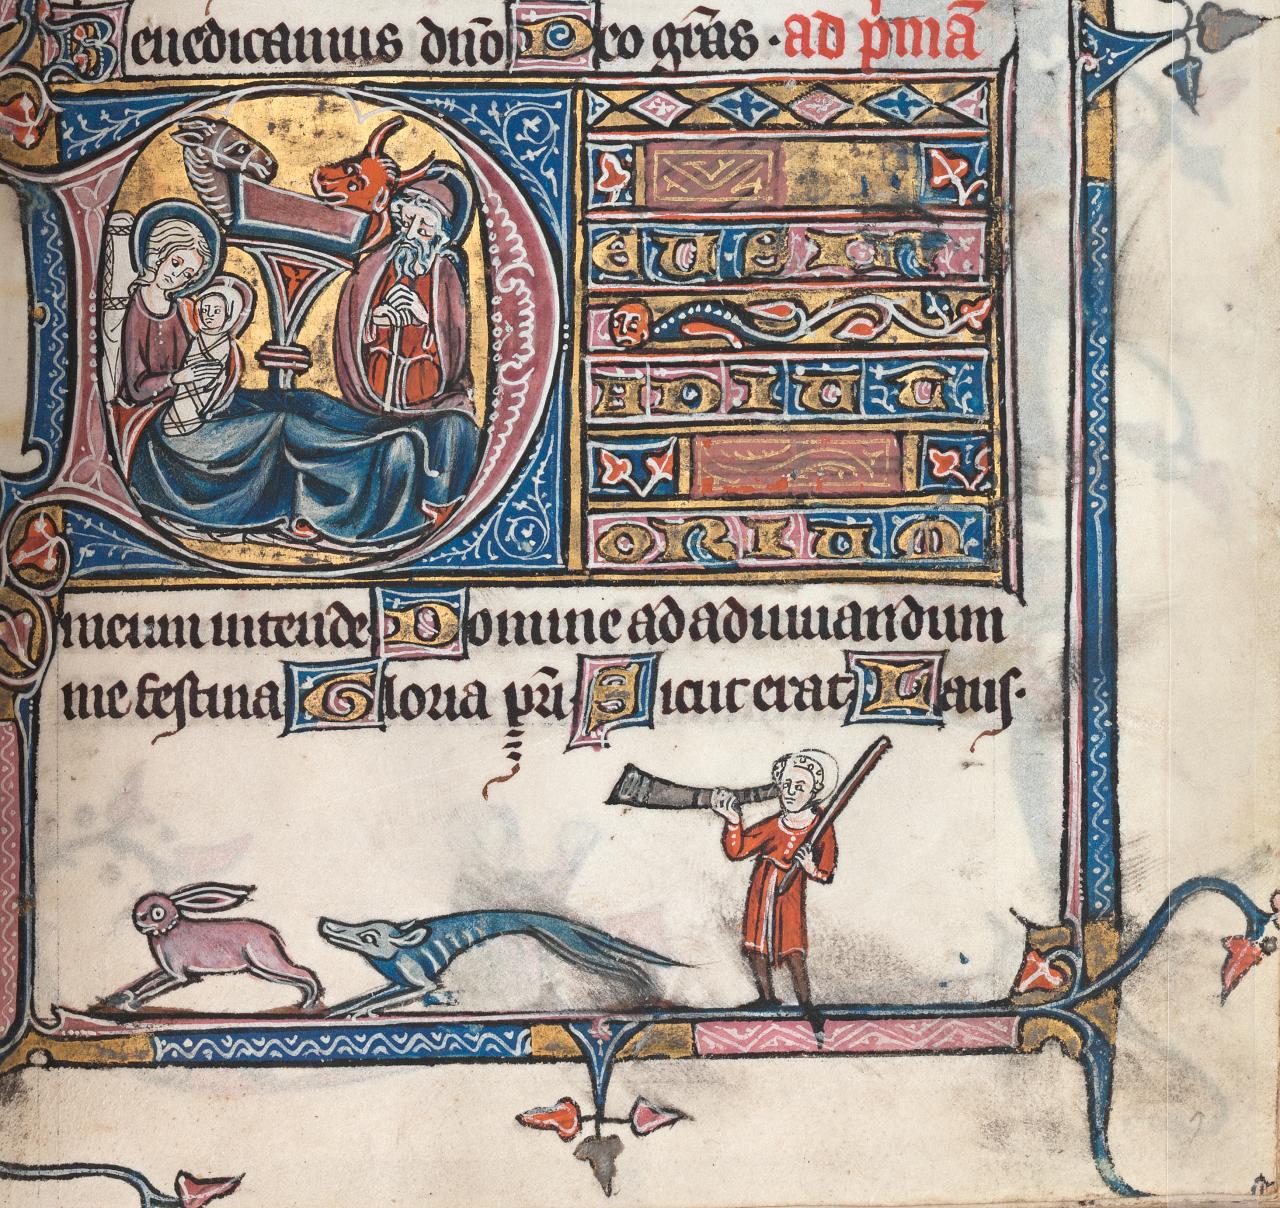 Benedicamus dño Deo grãs · ad pͥmã
D
EUS IN
ADIUT
ORIUM
meum intende Domine ad adiuuandum
me festina Gloria pr̃i. Sicut erat. Laus.